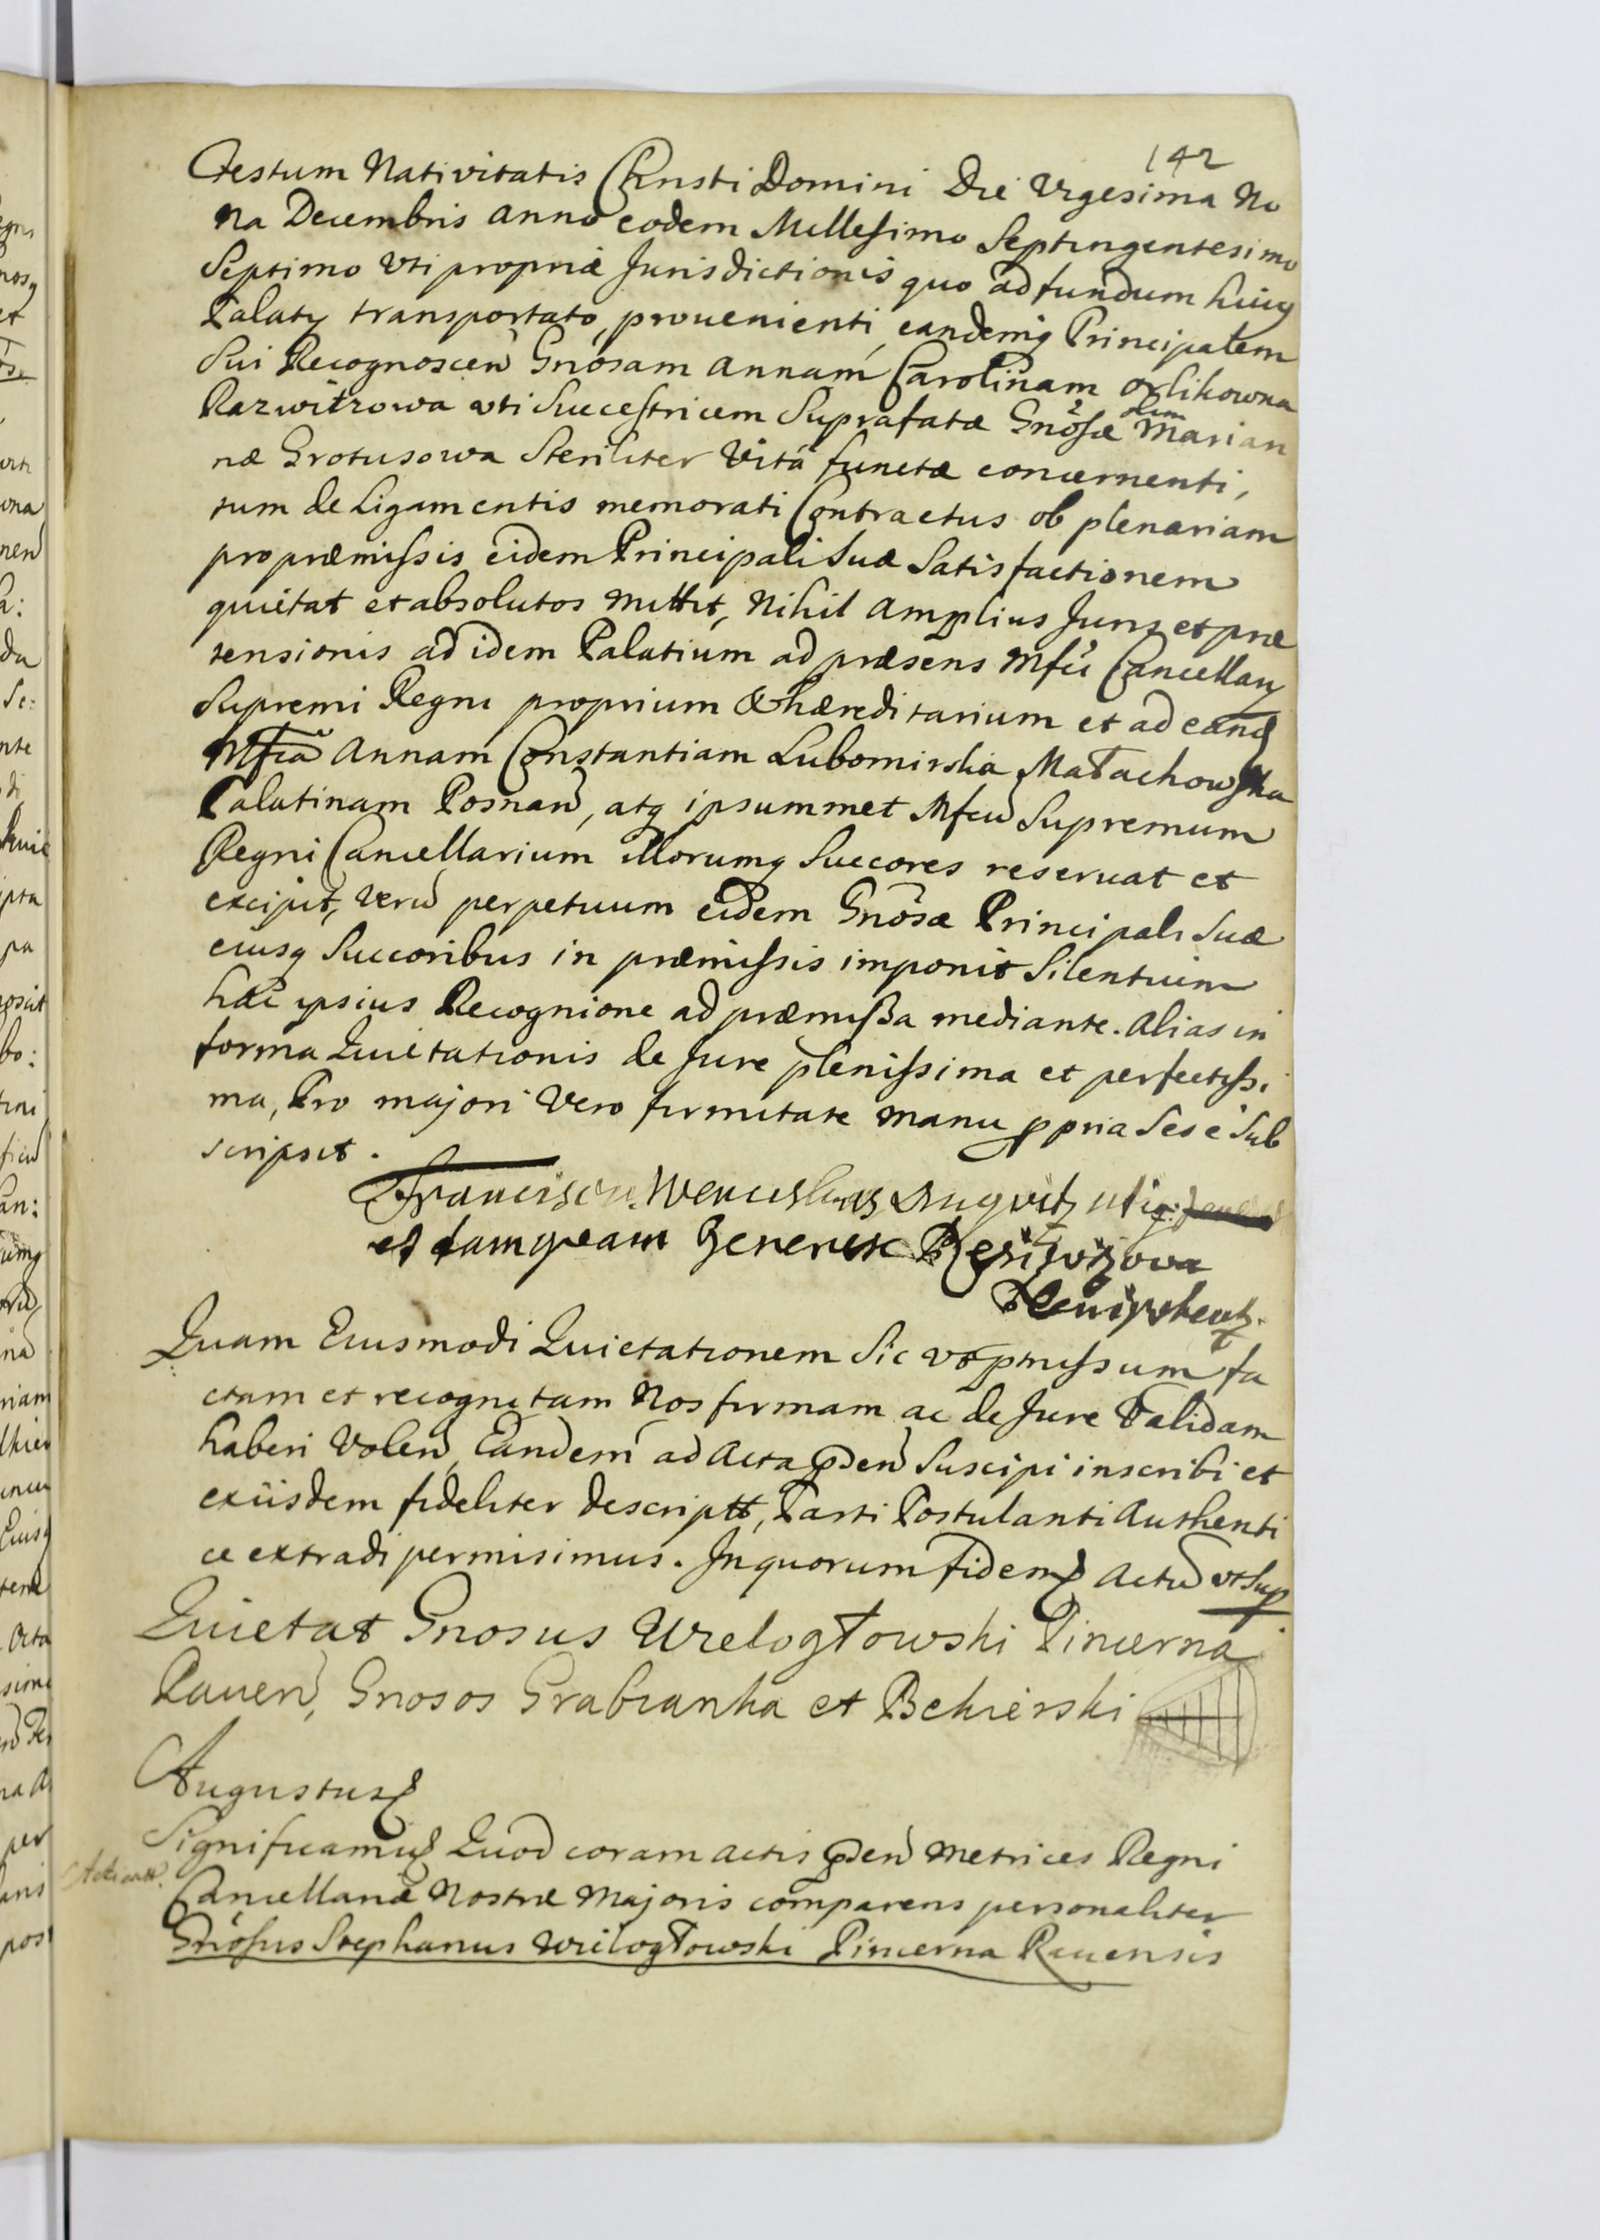 142
Festum Nativitatis Christi Domini Die Vigesima No
na Decembris anno eodem Millesimo Septingentesimo
Septimo Uti propriæ Jurisdictionis quo ad fundum huiq
Palaty transportato, prouenienti, eandemq Principalem
Sui Recognoscen Gnosam Annam Carolinam Orlikowna
Razwitzowa uti Succestricem Suprafatæ Gnosæ olim Marian
næ Grotusowa Steriliter Vitâ functæ concernenti,
tum de Ligamentis memorati Contractus ob plenariam
pro præmissis eidem Principali Suæ Satisfactionem
quietat et absolutos mittit, Nihil amplius Juris et præ
tensionis ad idem Palatium ad præsens Mfci Cancellary
Supremi Regni proprium & hæreditarium et ad eand
Mfcam Annam Constantiam Lubomirska Małachowska
Palatinam Posnan, atq ipsummet Mfcum Supremum
Regni Cancellarium illorumq Succores reseruat et
excipit, Veru perpetuum eidem Gnosæ Principali Suæ
eiusq Succoribus in præmissis imponit Silentium
hac ipsius Recognione ad præmissa mediante. Alias in
forma Quietationis de Jure plenissima et perfectissi
ma, Pro majori Vero firmitate manu ppria Sese Sub
scripsit.
et tamqeam Generose
Quam Eiusmodi Quietationem Sic ut pmissum fa
ctam et recognitam Nos firmam ac de Jure Validam
haberi Volen, Eandem ad Acta pden Suscipi inscribi et
ex iisdem fideliter descriptt, Parti Postulanti Authenti
ce extradi permisimus. In quorum fidem Actu ut Sup
Quietat Gnosus Wielogłowski Pincerna
Rauen, Gnosos Grabianka et Bekierski
Augustus
Significamus Quod coram actis pden Metrices Regni
Cancellariæ Nostræ Majoris comparens personaliter
Gnosus Stephanus Wielogłowski Pincerna Rauensis